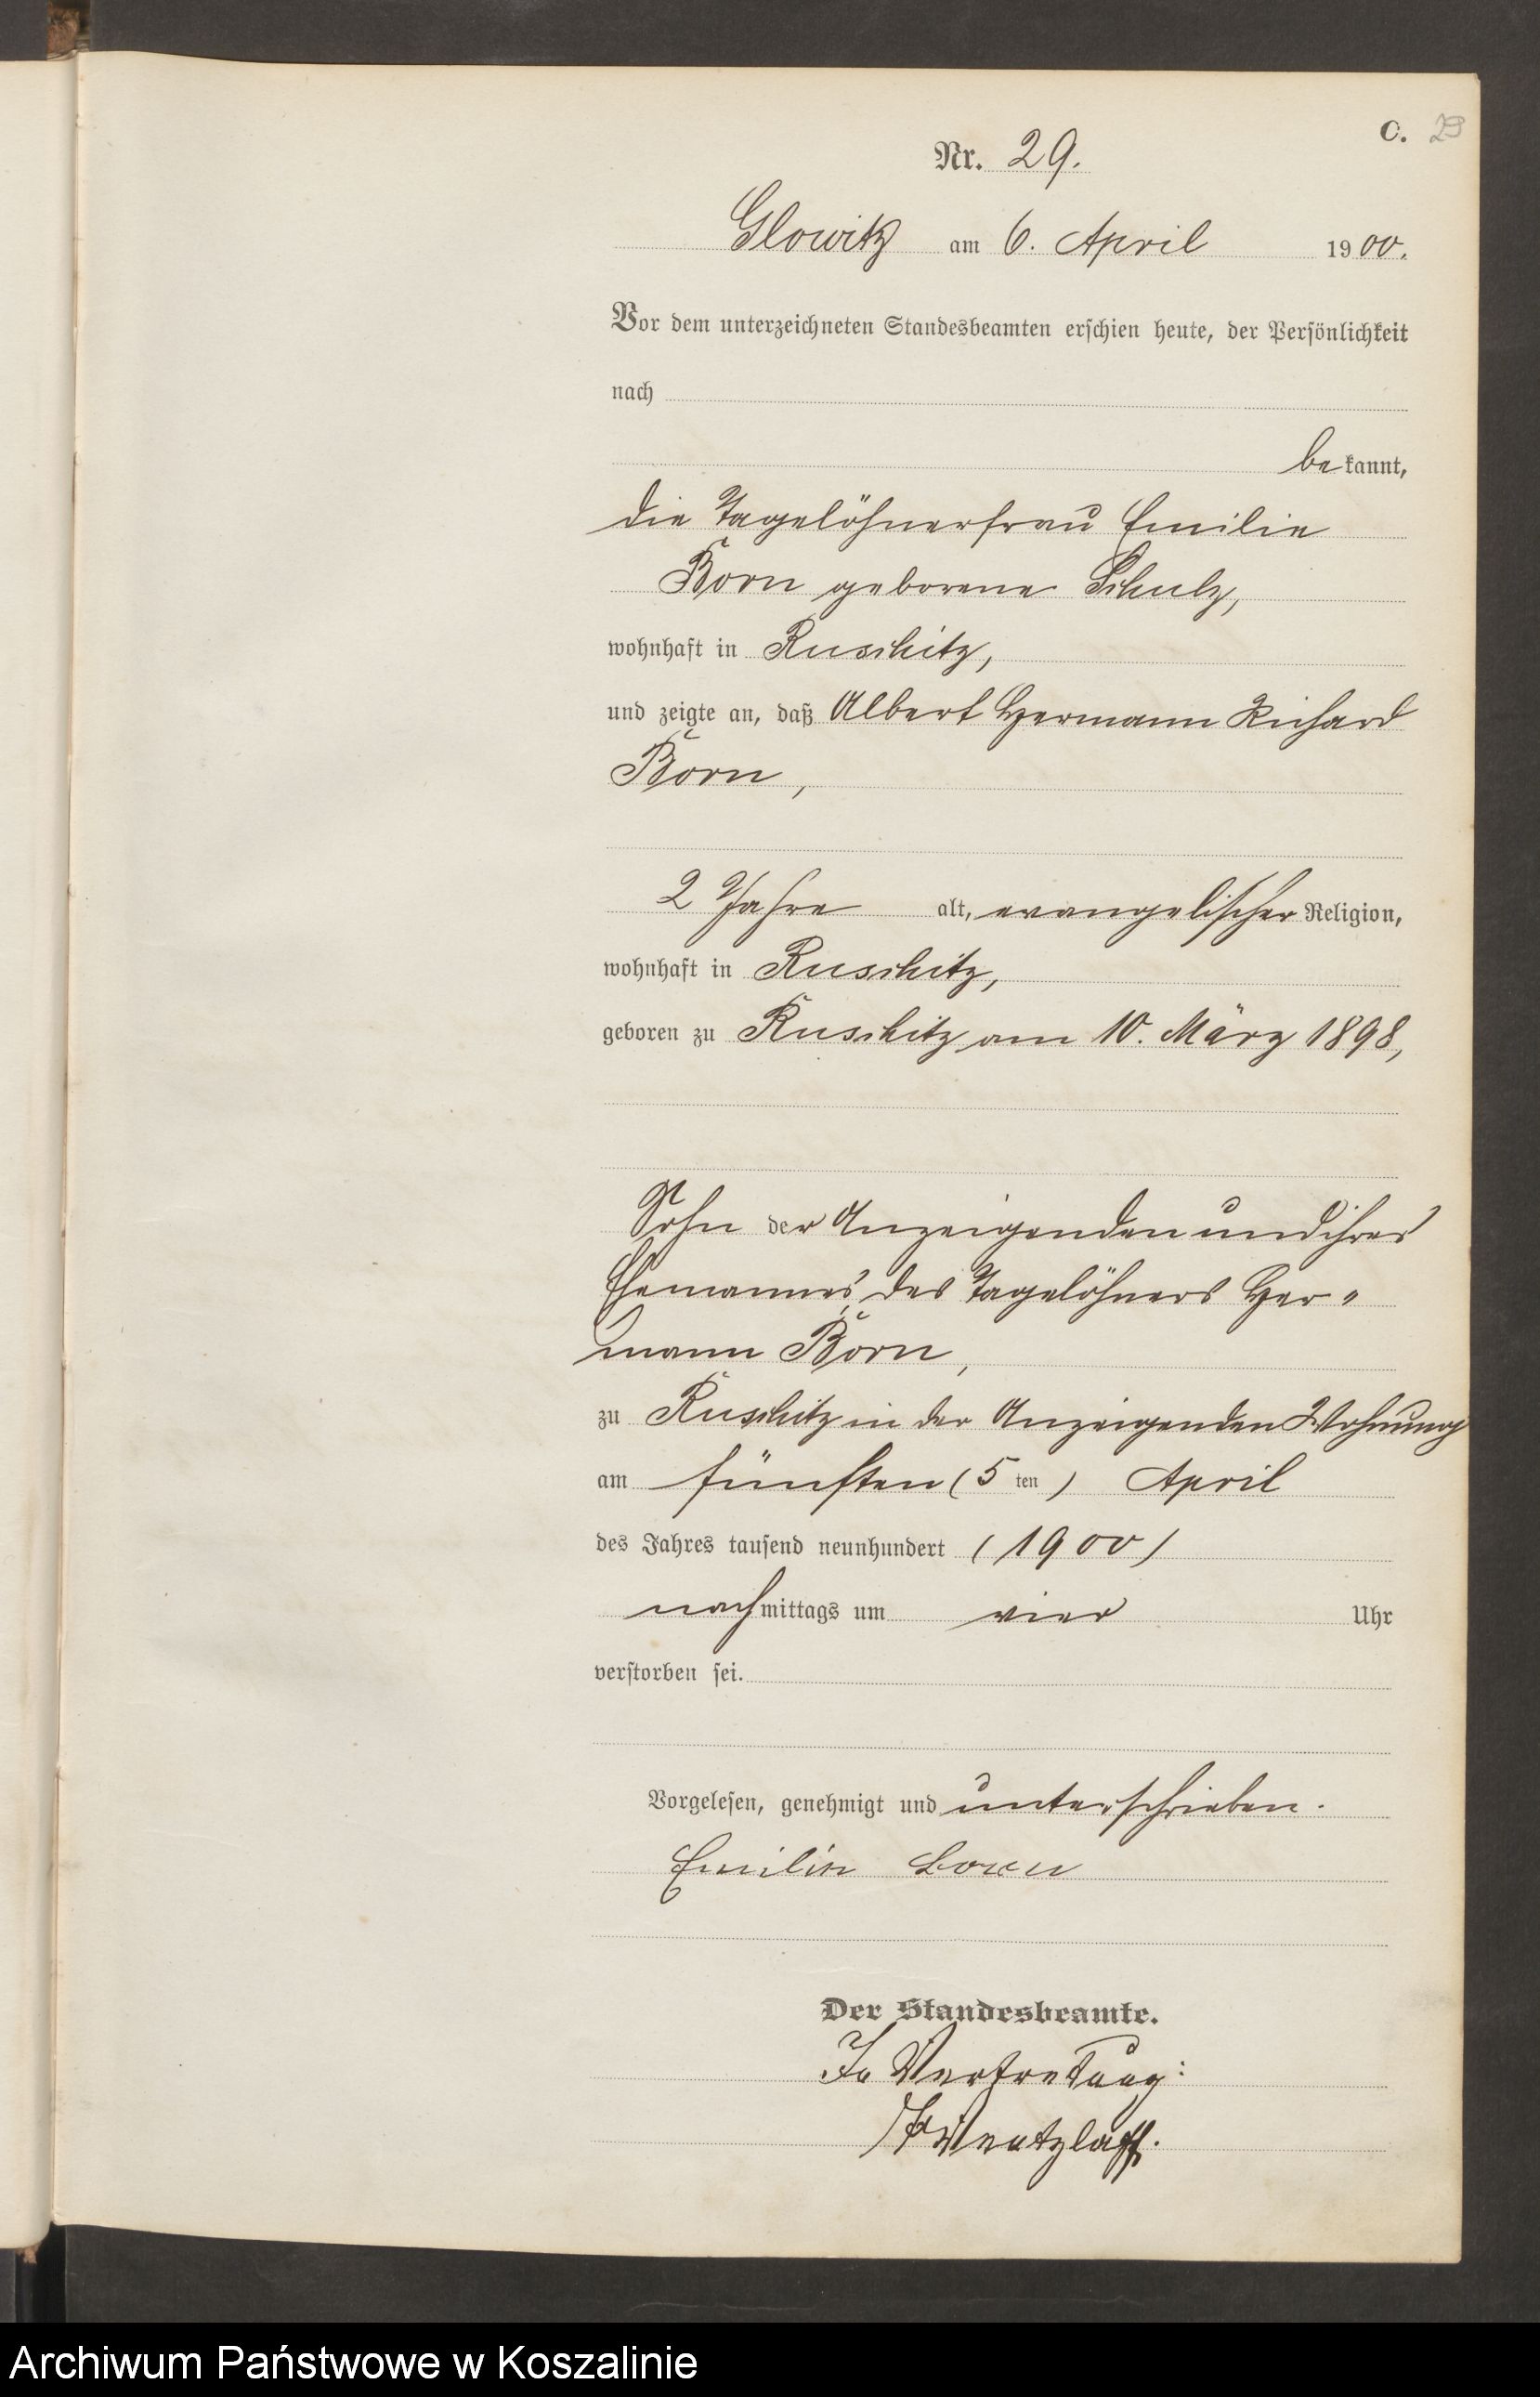 C. 29
Nr. 29.
Glowitz am 6. April 1900.
Vor dem unterzeichneten Standesbeamten erschien heute, der Persönlichkeit
nach
bekannt,
die Tagelöhnerfrau Emilie
Born geborene Schulz,
wohnhaft in Ruschitz,
und zeigte an, daß Albert Hermann Richard
Born,
2 Jahre alt, evangelischer Religion,
wohnhaft in Ruschitz,
geboren zu Ruschitz am 10. März 1898,
Sohn der Anzeigenden und ihres
Ehemannes, des Tagelöhners Her-
mann Born,
zu Ruschitz in der Anzeigenden Wohnung
am fünften (5 ten) April
des Jahres tausend neunhundert (1900)
nachmittags um vier Uhr
verstorben sei.
Vorgelesen, genehmigt und unterschrieben.
Emilie Born
Der Standesbeamte.
In Vertretung:
Wentzlaff.
Archiwum Państwowe w Koszalinie